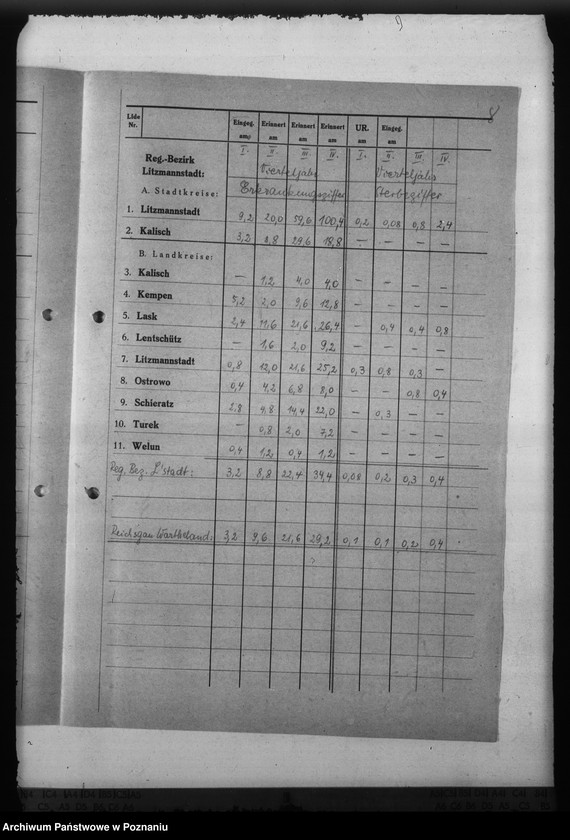 8
Lfde Nr. Eingeg. am Erinnert am Erinnert am Erinnert am UR. am Eingeg. am
I. II. III. IV. I. II. III. IV.
Reg.-Bezirk
Litzmannstadt: Vierteljahr Vierteljahr
A. Stadtkreise: Erkrankungsziffer Sterbeziffer
1. Litzmannstadt 9,2 20,0 59,6 100,4 0,2 0,08 0,8 2,4
2. Kalisch 3,2 8,8 29,6 18,8 — — — —
B. Landkreise:
3. Kalisch — 1,2 4,0 4,0 — — — —
4. Kempen 5,2 2,0 9,6 12,8 — — — —
5. Lask 2,4 11,6 21,6 26,4 — 0,4 0,4 0,8
6. Lentschütz — 1,6 2,0 9,2 — — — —
7. Litzmannstadt 0,8 12,0 21,6 25,2 0,3 0,8 0,3 —
8. Ostrowo 0,4 4,2 6,8 8,0 — — 0,8 0,4
9. Schieratz 2,8 9,8 14,4 22,0 — 0,3 — —
10. Turek — 0,8 2,0 7,2 — — — —
11. Welun 0,4 1,2 0,4 1,2 — — — —
Reg. Bez. L'stadt: 3,2 8,8 22,4 34,4 0,08 0,2 0,3 0,4
Reichsgau Wartheland: 3,2 9,6 21,6 29,2 0,1 0,1 0,2 0,4
Archiwum Państwowe w Poznaniu